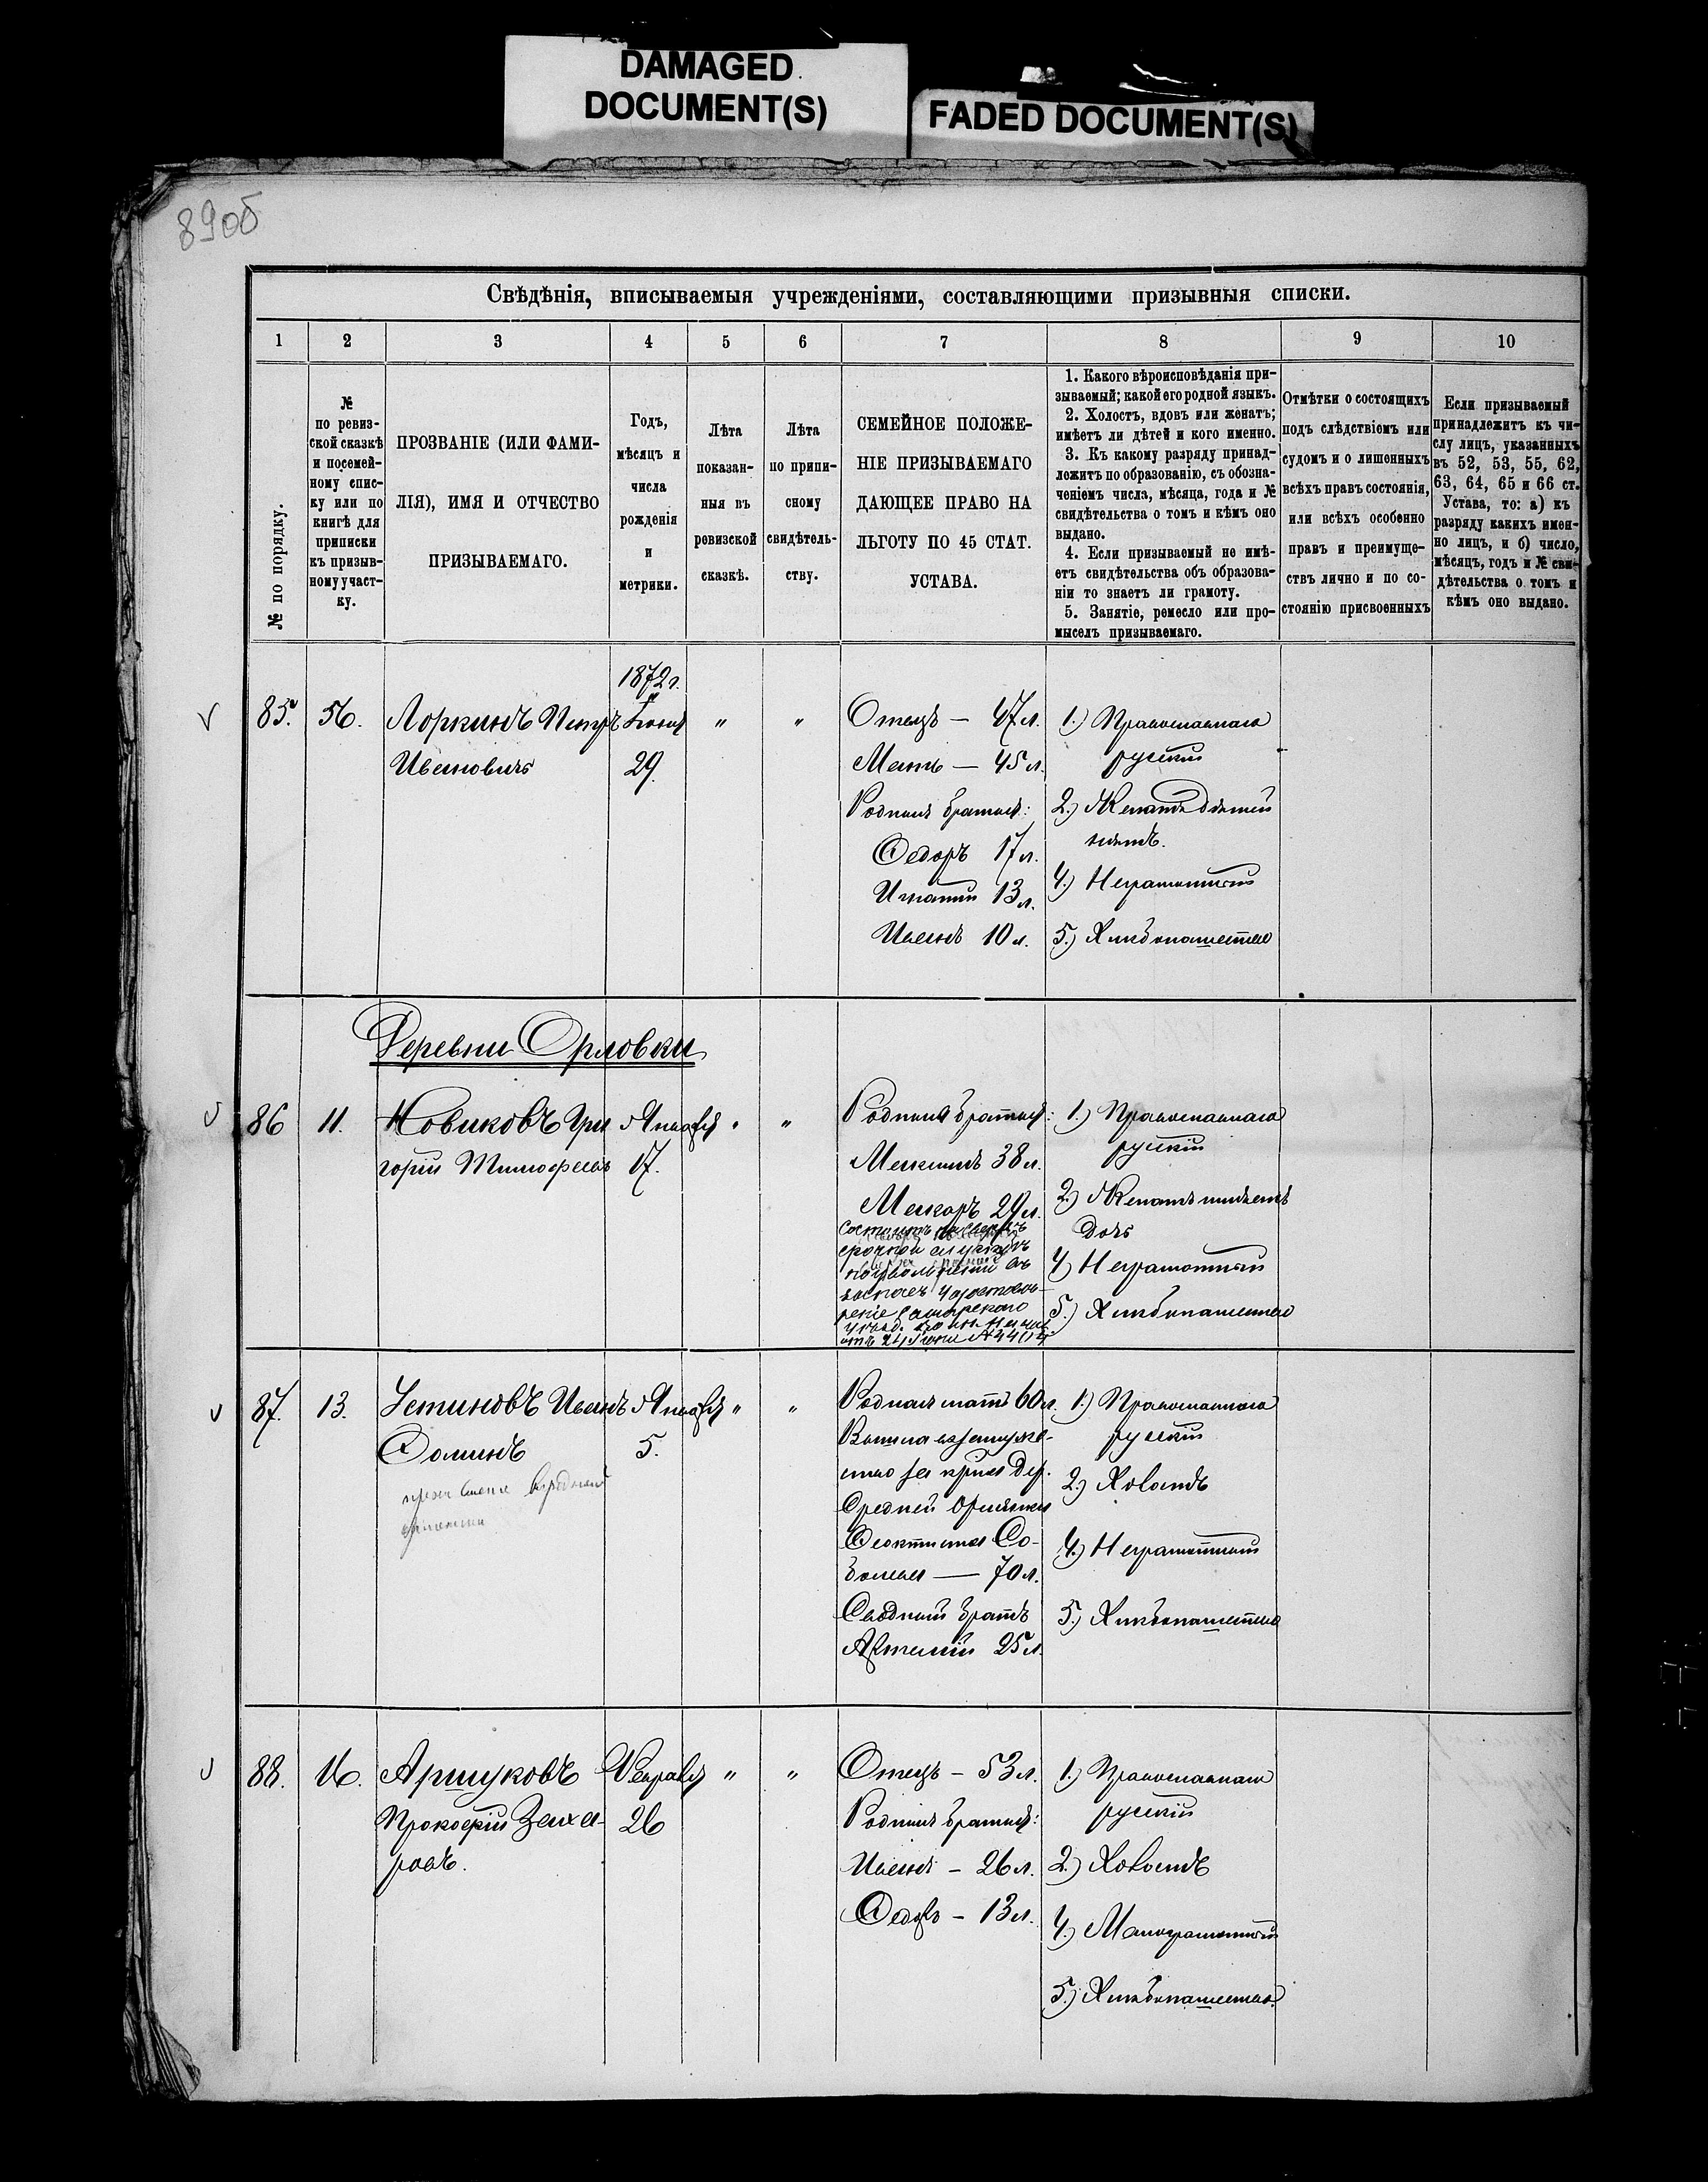 DAMAGED
DOCUMENT(S)
FADED DOCUMENT(S)
89об
Свѣдѣнія, вписываемыя учрежденіями, составляющими призывныя списки.
1 2 3 4 5 6 7 8 9 10
№ по порядку.
№
по ревиз-
ской сказкѣ
и посемей-
ному спис-
ку или по
книгѣ для
приписки
къ призыв-
ному участ-
ку.
ПРОЗВАНІЕ (ИЛИ ФАМИ-
ЛІЯ), ИМЯ И ОТЧЕСТВО
ПРИЗЫВАЕМАГО.
Годъ,
мѣсяцъ и
числа
рожденія
и
метрики.
Лѣта
показан-
ныя въ
ревизской
сказкѣ.
Лѣта
по припи-
сному
свидѣтель-
ству.
СЕМЕЙНОЕ ПОЛОЖЕ-
НІЕ ПРИЗЫВАЕМАГО
ДАЮЩЕЕ ПРАВО НА
ЛЬГОТУ ПО 45 СТАТ.
УСТАВА.
1. Какого вѣроисповѣданія при-
зываемый; какой его родной языкъ.
2. Холостъ, вдовъ или женатъ;
имѣетъ ли дѣтей и кого именно.
3. Къ какому разряду принад-
лежитъ по образованію, съ обозна-
ченіемъ числа, мѣсяца, года и №
свидѣтельства о томъ и кѣмъ оно
выдано.
4. Если призываемый не имѣ-
етъ свидѣтельства объ образова-
ніи то знаетъ ли грамоту.
5. Занятіе, ремесло или про-
мыселъ призываемаго.
Отмѣтки о состоящихъ
подъ слѣдствіемъ или
судомъ и о лишенныхъ
всѣхъ правъ состоянія,
или всѣхъ особенно
правъ и преимуще-
ствъ лично и по со-
стоянію присвоенныхъ
Если призываемый
принадлежитъ къ чи-
слу лицъ, указанныхъ
въ 52, 53, 55, 62,
63, 64, 65 и 66 ст.
Устава, то: а) къ
разряду какихъ имен-
но лицъ, и б) число,
мѣсяцъ, годъ и № сви-
дѣтельства о томъ и
кѣмъ оно выдано.
85. 56. Лоркинъ Петръ
Ивановичъ
1872 г.
Іюня
29.
" "
Отецъ — 47 л.
Мать — 45 л.
Родныя братья:
Ѳедоръ 17 л.
Игнатій 13 л.
Иванъ 10 л.
1.) Православнаго
русскій
2.) Женатъ дѣтей
нѣтъ.
4.) Неграмотный
5.) Хлѣбопашество
Деревни Орловки
86 11. Новиковъ Гри
горій Тимофеевъ
Января
17.
" "
Родныя братья:
Максимъ 38 л.
Макаръ 29 л.
1.) Православнаго
русскій
2.) Женатъ имѣетъ
дочь
4) Неграмотный
5.) Хлѣбопашество
87. 13. Устиновъ Иванъ
Ѳоминъ
Января
5.
" "
Родная мать 60 л.
Вышла въ замуже-
ство за крест. дер.
Средней Орлянки
Ѳеоктиста Со-
болева — 70 л.
Сводный братъ
Артемій 25 л.
1.) Православнаго
русскій
2.) Холостъ
4.) Неграмотный
5.) Хлѣбопашество
88. 16. Аршуковъ
Прокофій Заха-
ровъ.
Февраля
26
" "
Отецъ — 53 л.
Родныя братья:
Иванъ — 26 л.
Ѳедоръ — 13 л.
1.) Православнаго
русскій
2.) Холостъ
4.) Малограмотный
5.) Хлѣбопашество.